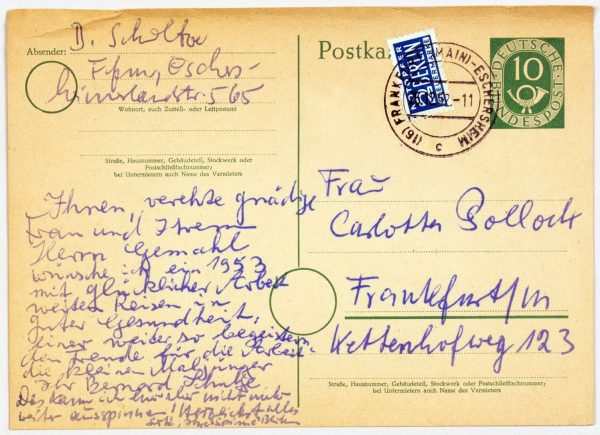 Absender:
B. Schultze
Ffm, Eschers-
heimerlandstr 565
Wohnort, auch Zustell- oder Leitpostamt
Straße, Hausnummer, Gebäudeteil, Stockwerk oder
Postschließfachnummer;
bei Untermietern auch Name des Vermieters
Postka
NOTOPFER
2 BERLIN
STEUERMARKE
(16) FRANKF (MAIN)-ESCHERSHEIM
-11
c
DEUTSCHE
10
BUNDESPOST
Ihnen, verehrte gnädige
Frau und Ihrem
Herrn Gemahl
wünsche ich ein 1953
mit glücklicher Arbeit
weiten Reisen u
guter Gesundheit,
einer weiter so
Freude für die Arbeit
die kleinen
Ihr Bernard Schultze
Das kann ich hier aber nicht mehr
weiter ausspinnen! Herzlichst alles
Frau
Carlotta Pollock
Frankfurt/M
Kettenhofweg 123
Straße, Hausnummer, Gebäudeteil, Stockwerk oder Postschließfachnummer;
bei Untermietern auch Name des Vermieters